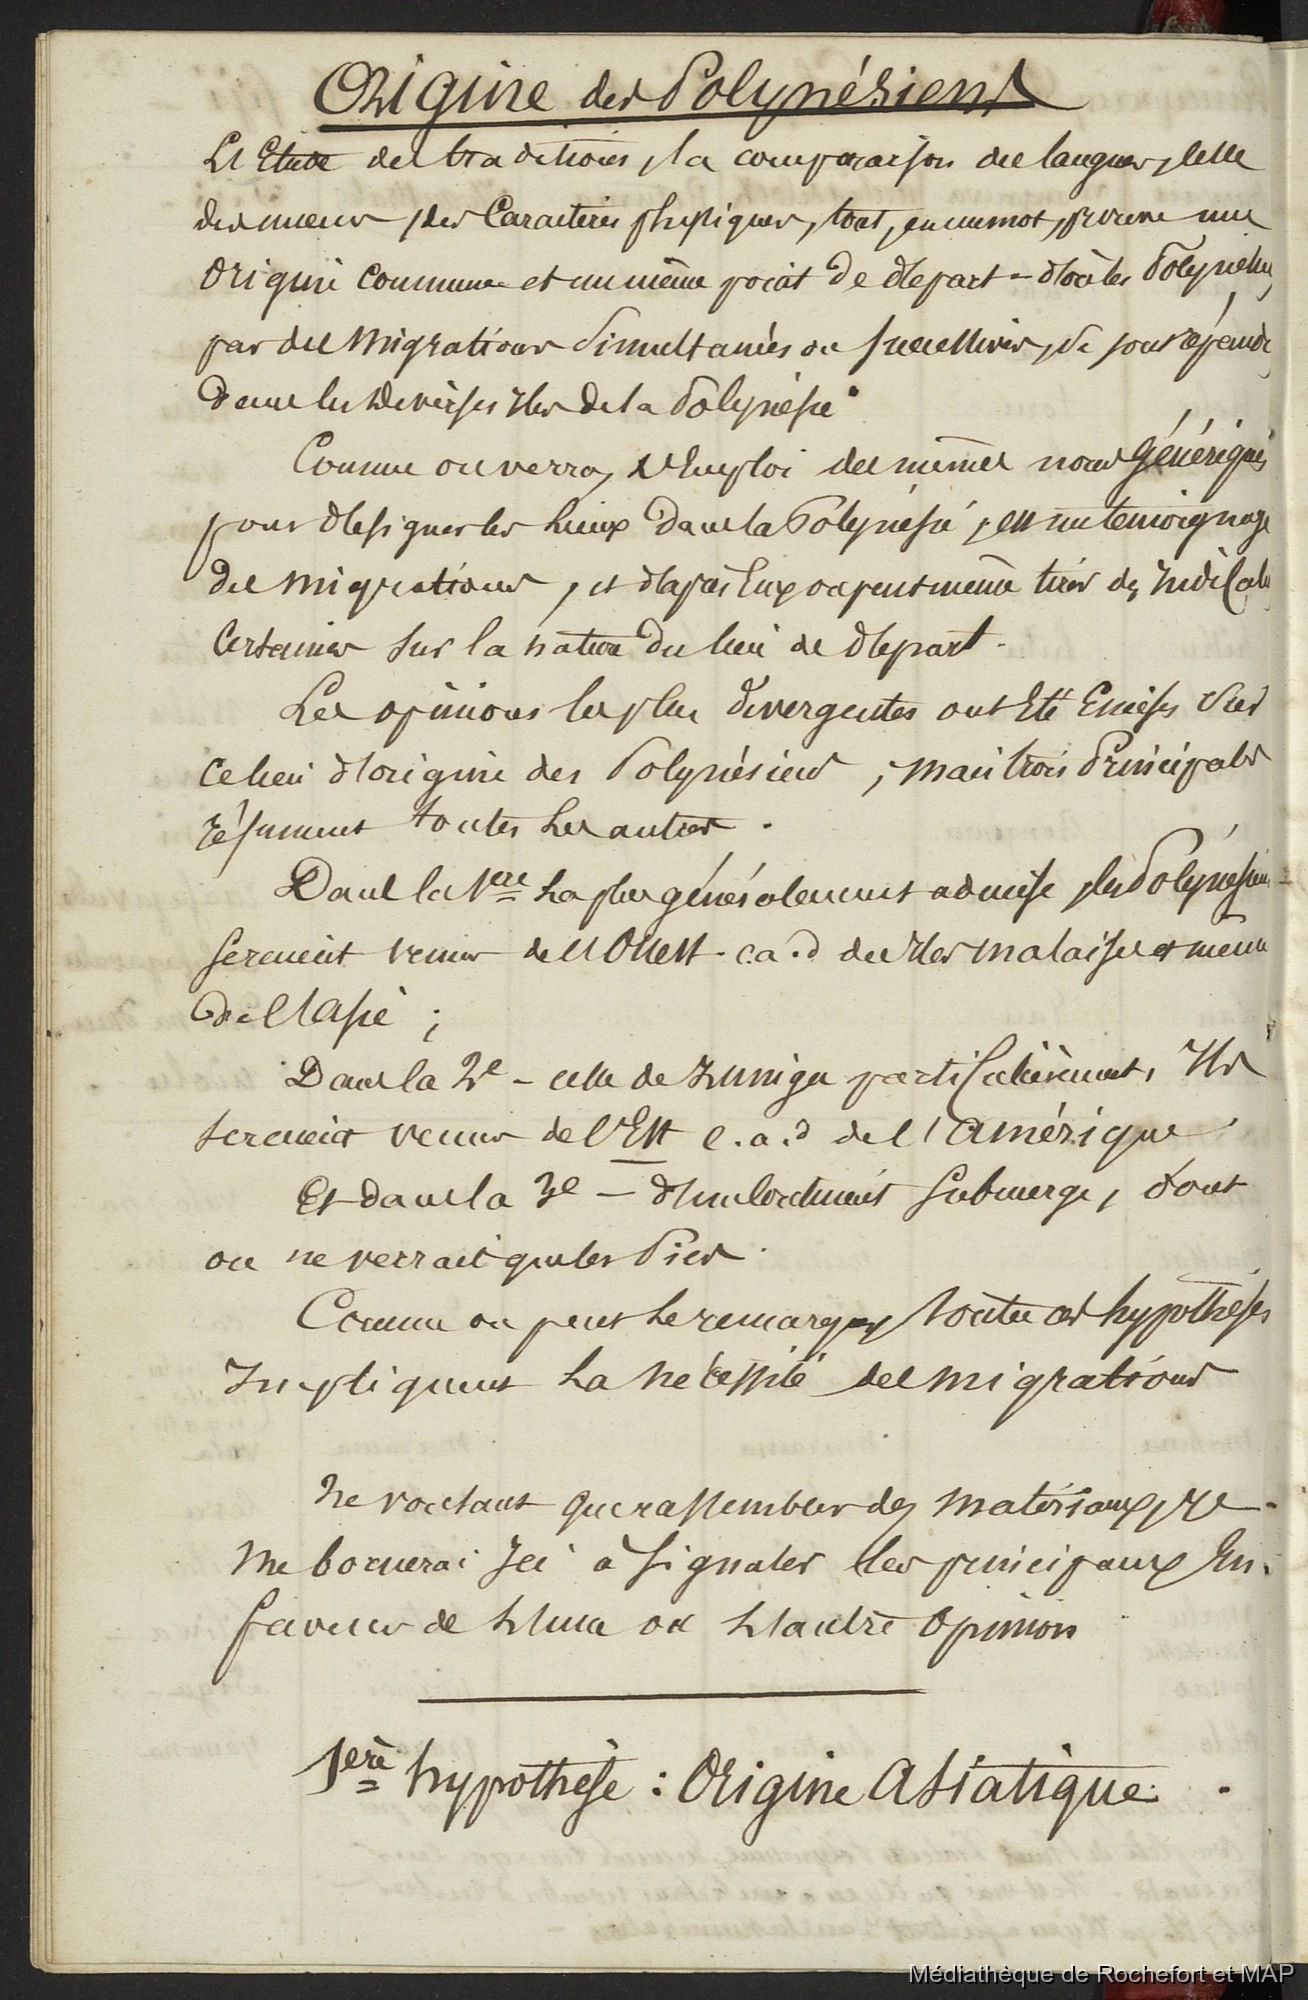 Origine des Polynésiens
L'Etude des traditions, la comparaison des langues, celle
des mœurs, des Caractères physiques, tout, en un mot, prouve une
Origine Commune et un même point de départ - d'où les Polynésiens,
par des Migrations Simultanées ou successives, se sont répandus
dans les Diverses Iles de la Polynésie.
Comme on verra, l'Emploi des mêmes noms Génériques
pour désigner les lieux dans la Polynésie, est un témoignage
des Migrations, et d'après Eux on peut même tirer des Indications
Certaines sur la nature du lieu de départ.
Les opinions les plus divergentes ont Eté Emises Sur
ce lieu d'origine des Polynésiens, mais trois Principales
résument toutes les autres.
Dans la 1ere La plus généralement admise, les Polynésiens
seraient venus de l'Ouest. c.a.d des Iles malaises et même
de l'Asie ;
Dans la 2e - celle de Zuniga particulièrement, Ils
seraient venus de l'Est c.a.d de l'Amérique.
Et dans la 3e - d'un Continent submergé, dont
on ne verrait que les Pics.
Comme on peut le remarquer, toutes ces hypothèses
Impliquent La nécessité des migrations
Ne voulant que rassembler des matériaux, Je
me bornerai Ici à signaler les principaux En
faveur de L'une ou L'autre Opinion
1ere hypothèse : Origine Asiatique.
Médiathèque de Rochefort et MAP